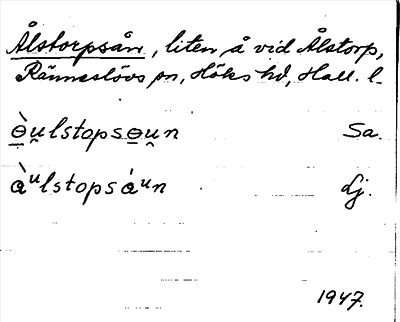 Ålstorpsån, liten å vid Ålstorp,
Ränneslövs sn, Höks hd, Hall. l.
ɵ̀u̯lstopsɵu̯n Sa.
àᵘlstopsáᵘn Lj.
1947.